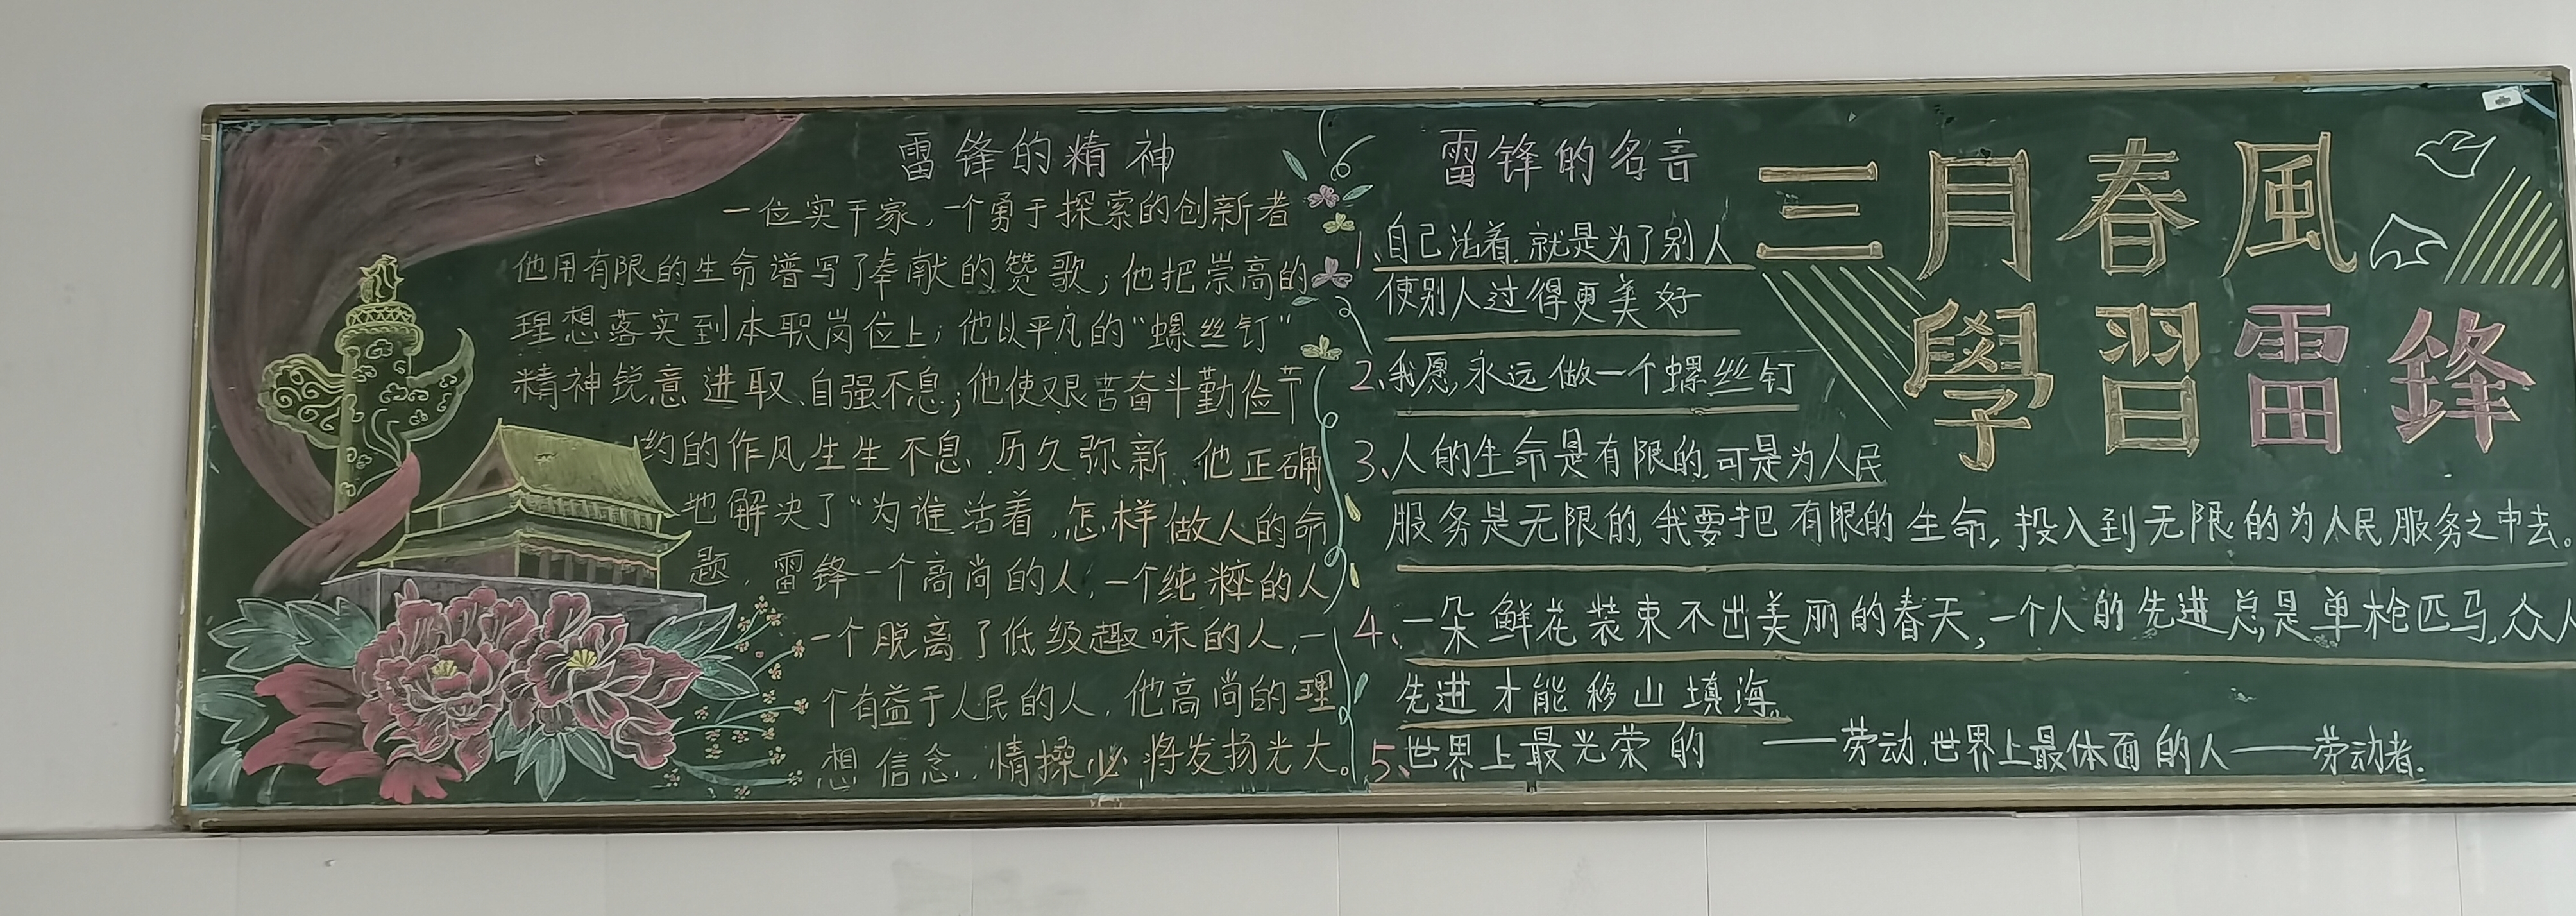 雷锋的精神
一位实干家，一个勇于探索的创新者
他用有限的生命谱写了奉献的赞歌；他把崇高的
理想落实到本职岗位上；他以平凡的“螺丝钉”
精神锐意进取、自强不息；他使艰苦奋斗勤俭节
约的作风生生不息、历久弥新、他正确
地解决了“为谁活着，怎样做人的命
题，雷锋一个高尚的人，一个纯粹的人
一个脱离了低级趣味的人，一
个有益于人民的人，他高尚的理
想信念，情操必将发扬光大。
雷锋的名言
1、自己活着，就是为了别人
使别人过得更美好
2、我愿，永远做一个螺丝钉
3、人的生命是有限的，可是为人民
服务是无限的，我要把有限的生命，投入到无限的为人民服务之中去。
4、一朵鲜花装束不出美丽的春天，一个人的先进总是单枪匹马，众人
先进才能移山填海。
5、世界上最光荣的——劳动，世界上最体面的人——劳动者。
三月春風
學習雷鋒